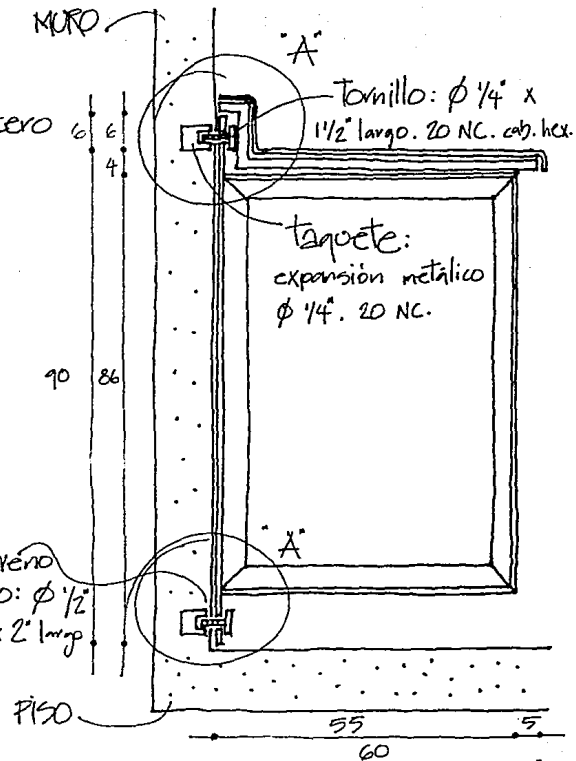 MURO
"A"
Tornillo: Ø 1/4" x
1 1/2" largo. 20 NC. cab. hex.
6 6
4
taquete:
expansión metálico
Ø 1/4". 20 NC.
90 86
"A"
Ø 1/2"
2" largo
PISO
55 5
60